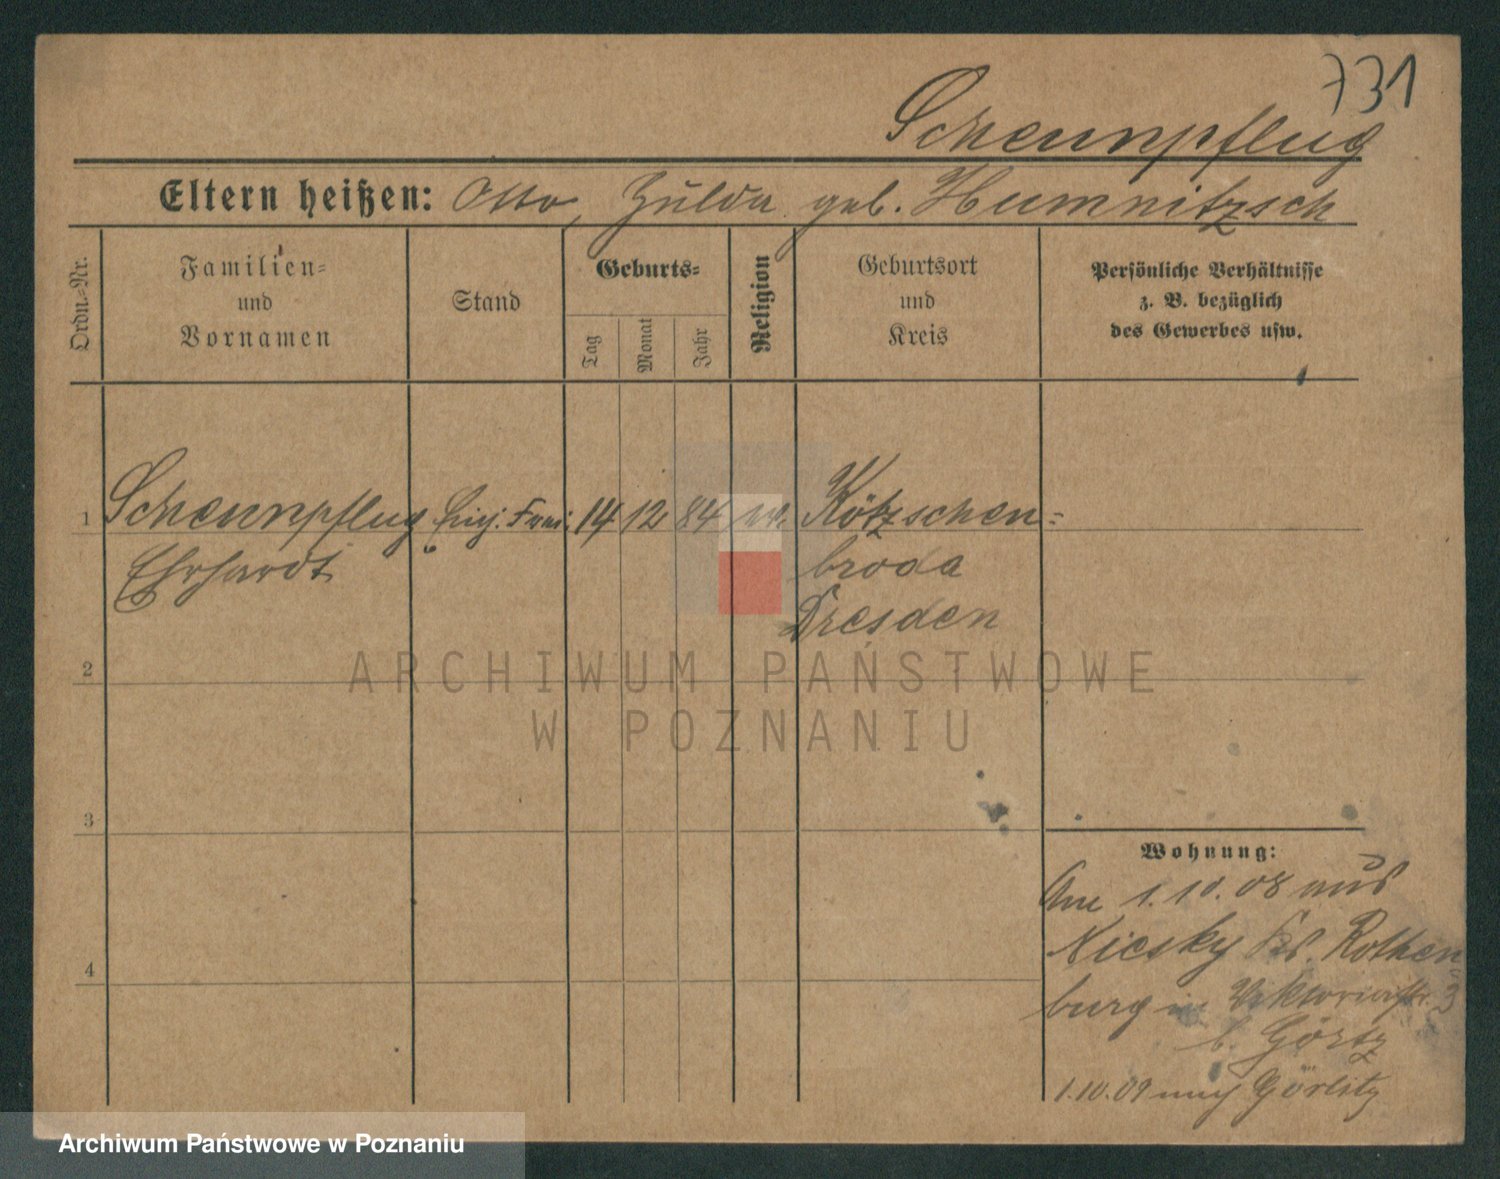 731
Scheunpflug
Eltern heißen: Otto, Hulda geb. Humnitzsch
Ordn.-Nr.
Familien-
und
Vornamen
Stand
Geburts-
Tag
Monat
Jahr
Religion
Geburtsort
und
Kreis
Persönliche Verhältnisse
z. B. bezüglich
des Gewerbes usw.
1 Scheunpflug Einj. Frei. 14 12 84 ev. Kötzschen-
Ehrhardt broda
Dresden
2
3
4
Wohnung:
Am 1.10.08 aus
Niesky Kr. Rothen
burg in Viktoriastr. 3
b. Görtz
1.10.09 nach Görlitz
ARCHIWUM PAŃSTWOWE
W POZNANIU
Archiwum Państwowe w Poznaniu